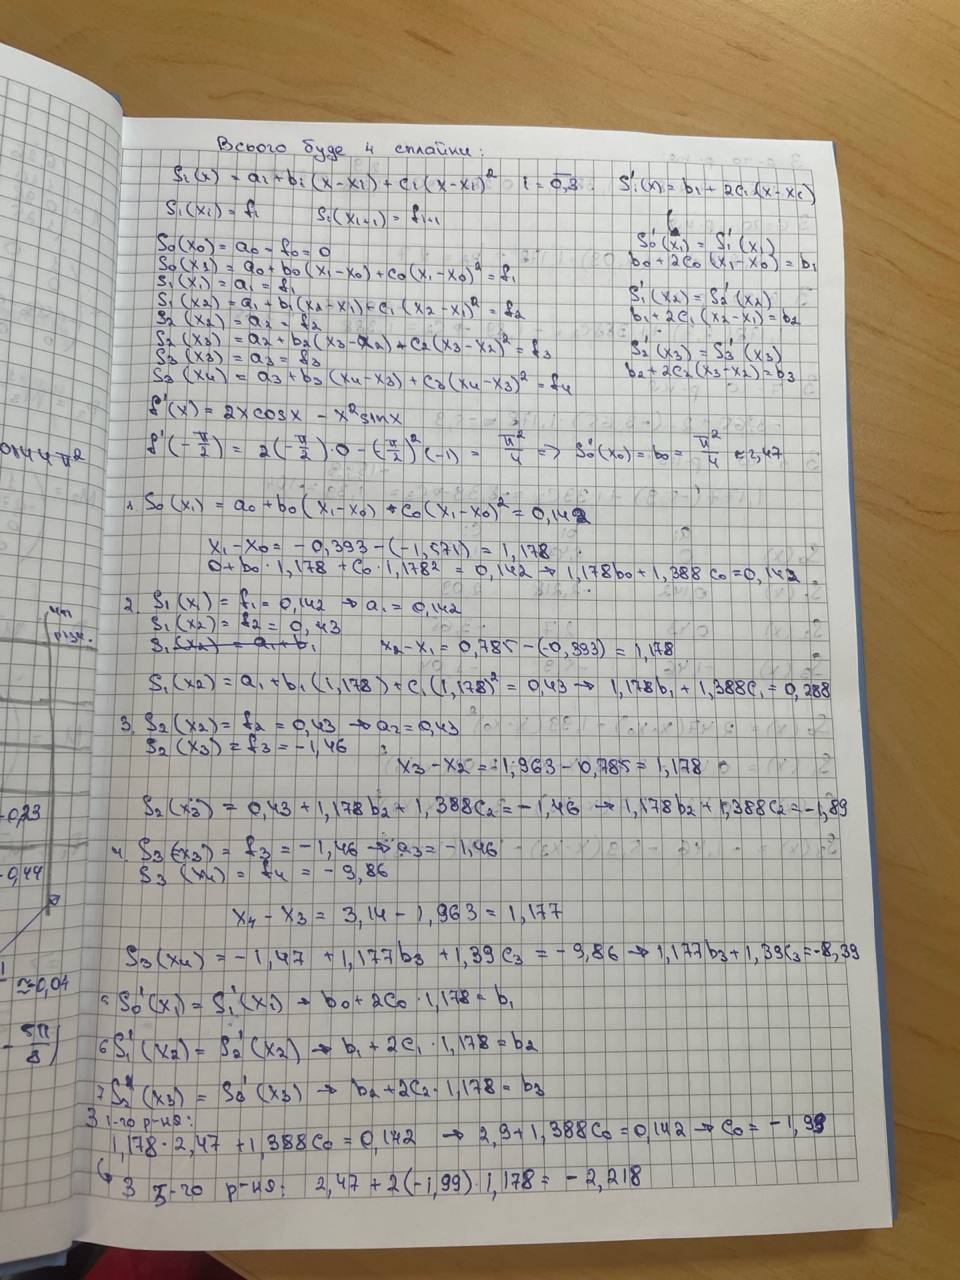 Всього буде 4 сплайни:
Si(x) = ai + bi (x-xi) + ci (x-xi)² i = 0,3 S'i(x) = bi + 2ci (x-xi)
Si(xi) = fi Si(xi+1) = fi+1
S0(x0) = a0 = f0 = 0
S0(x1) = a0 + b0 (x1-x0) + c0 (x1-x0)² = f1
S1(x1) = a1 = f1
S1(x2) = a1 + b1(x2-x1) + c1 (x2-x1)² = f2
S2(x2) = a2 = f2
S2(x3) = a2 + b2(x3-x2) + c2(x3-x2)² = f3
S3(x3) = a3 = f3
S3(x4) = a3 + b3(x4-x3) + c3(x4-x3)² = f4
S'0(x1) = S'1(x1)
b0 + 2c0 (x1-x0) = b1
S'1(x2) = S'2(x2)
b1 + 2c1 (x2-x1) = b2
S'2(x3) = S'3(x3)
b2 + 2c2 (x3-x2) = b3
f'(x) = 2x cosx - x² sinx
f'(-π/2) = 2(-π/2)·0 - (-π/2)²(-1) = π²/4 => S'0(x0) = b0 = π²/4 ≈ 2,47
1. S0(x1) = a0 + b0 (x1-x0) + c0 (x1-x0)² = 0,142
x1-x0 = -0,393 - (-1,571) = 1,178
0 + b0 · 1,178 + c0 · 1,178² = 0,142 → 1,178b0 + 1,388 c0 = 0,142
2. S1(x1) = f1 = 0,142 → a1 = 0,142
S1(x2) = f2 = 0,43
S1(x2) = a1 + b1
x2-x1 = 0,785 - (-0,393) = 1,178
S1(x2) = a1 + b1 (1,178) + c1 (1,178)² = 0,43 → 1,178b1 + 1,388c1 = 0,288
3. S2(x2) = f2 = 0,43 → a2 = 0,43
S2(x3) = f3 = -1,46
x3-x2 = 1,963 - 0,785 = 1,178
S2(x3) = 0,43 + 1,178b2 + 1,388c2 = -1,46 → 1,178b2 + 1,388c2 = -1,89
4. S3(x3) = f3 = -1,46 → a3 = -1,46
S3(x4) = f4 = -9,86
x4-x3 = 3,14 - 1,963 = 1,177
S3(x4) = -1,47 + 1,177b3 + 1,39c3 = -9,86 → 1,177b3 + 1,39c3 = -8,39
5 S'0(x1) = S'1(x1) → b0 + 2c0 · 1,178 = b1
6 S'1(x2) = S'2(x2) → b1 + 2c1 · 1,178 = b2
7 S'2(x3) = S'3(x3) → b2 + 2c2 · 1,178 = b3
З 1-го р-ня:
1,178 · 2,47 + 1,388c0 = 0,142 → 2,9 + 1,388c0 = 0,142 → c0 = -1,99
З 5-го р-ня: 2,47 + 2(-1,99)·1,178 = -2,218
0,144π²
-0,23
-0,44
≈0,04
- 5π/8)